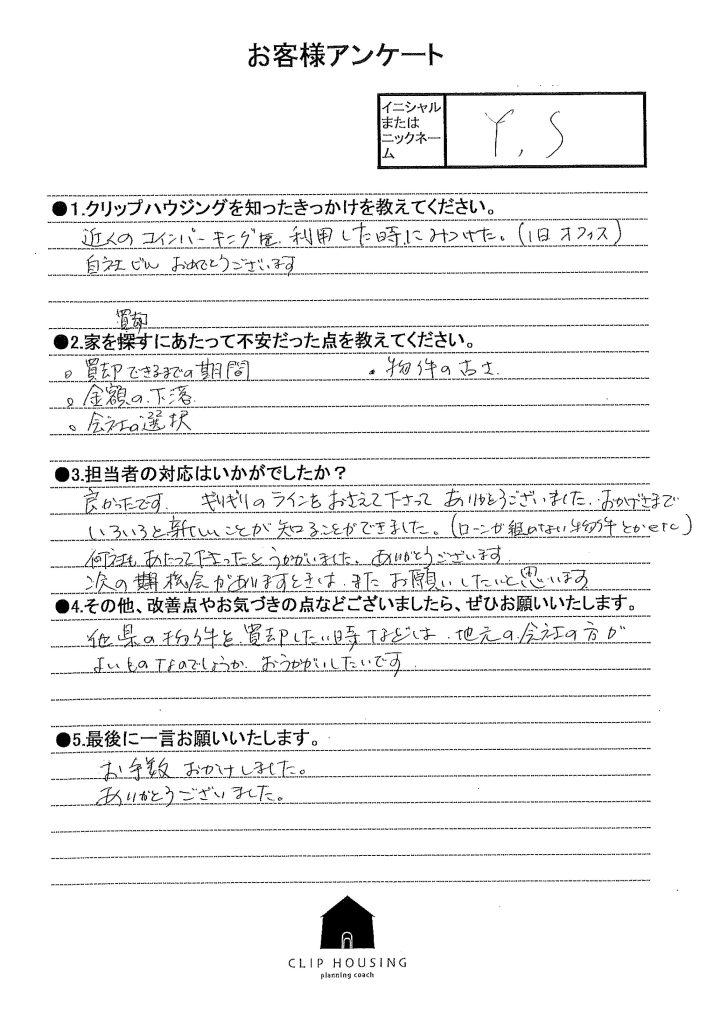 お客様アンケート
イニシャル
または
ニックネー
ム
Y, S
●1.クリップハウジングを知ったきっかけを教えてください。
近くのコインパーキングを利用した時にみつけた。(旧オフィス)
自社ビル おめでとうございます
買却
●2.家を探すにあたって不安だった点を教えてください。
。買却できるまでの期間 ・物件の古さ
。金額の下落
。会社の選択
●3.担当者の対応はいかがでしたか?
良かったです ギリギリのラインをおさえて下さって ありがとうございました。おかげさまで
いろいろと新しいことが知ることができました。(ローンが組めない物件とかetc)
何社もあたって下さったとうかがいました。ありがとうございます
次の機会がありますときは、またお願いしたいと思います
●4.その他、改善点やお気づきの点などございましたら、ぜひお願いいたします。
他県の物件を買却したい時などは、地元の会社の方が
よいものなのでしょうか、おうかがいしたいです
●5.最後に一言お願いいたします。
お手数おかけしました。
ありがとうございました。
CLIP HOUSING
planning coach